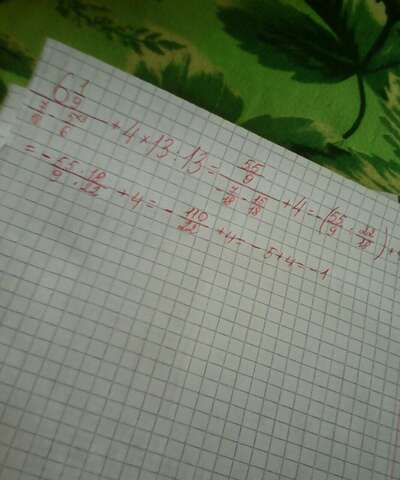 6 1/9 / - 5/6 + 4 × 13 : 13 = 55/9 / - 7/18 - 15/18 + 4 = - (55/9 : 22/18) +
= - 55 · 18 / 9 · 22 + 4 = - 110/22 + 4 = - 5 + 4 = - 1